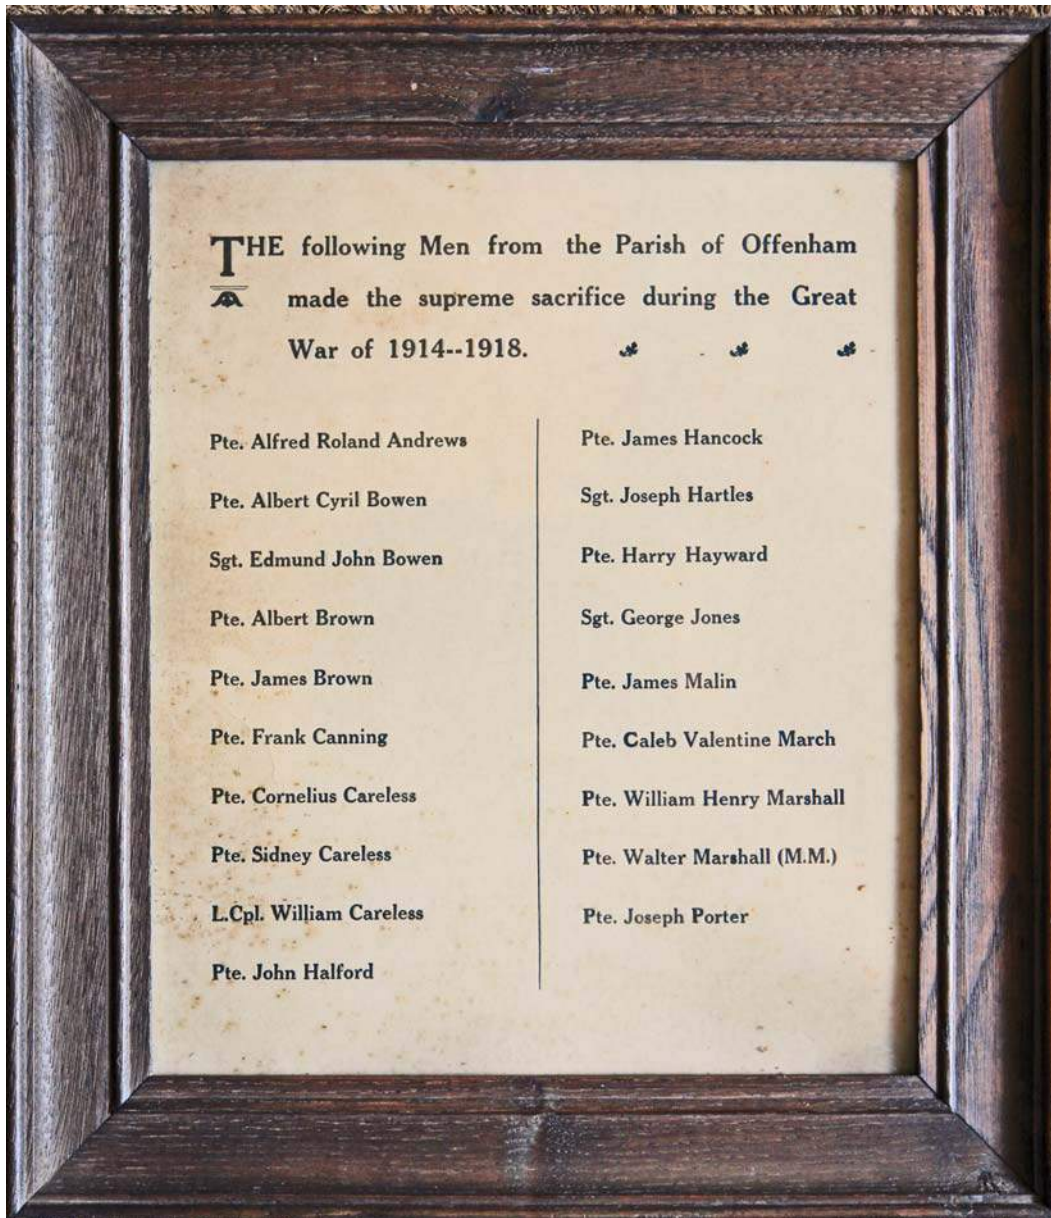 THE following Men from the Parish of Offenham
made the supreme sacrifice during the Great
War of 1914--1918.
Pte. Alfred Roland Andrews
Pte. Albert Cyril Bowen
Sgt. Edmund John Bowen
Pte. Albert Brown
Pte. James Brown
Pte. Frank Canning
Pte. Cornelius Careless
Pte. Sidney Careless
L.Cpl. William Careless
Pte. John Halford
Pte. James Hancock
Sgt. Joseph Hartles
Pte. Harry Hayward
Sgt. George Jones
Pte. James Malin
Pte. Caleb Valentine March
Pte. William Henry Marshall
Pte. Walter Marshall (M.M.)
Pte. Joseph Porter